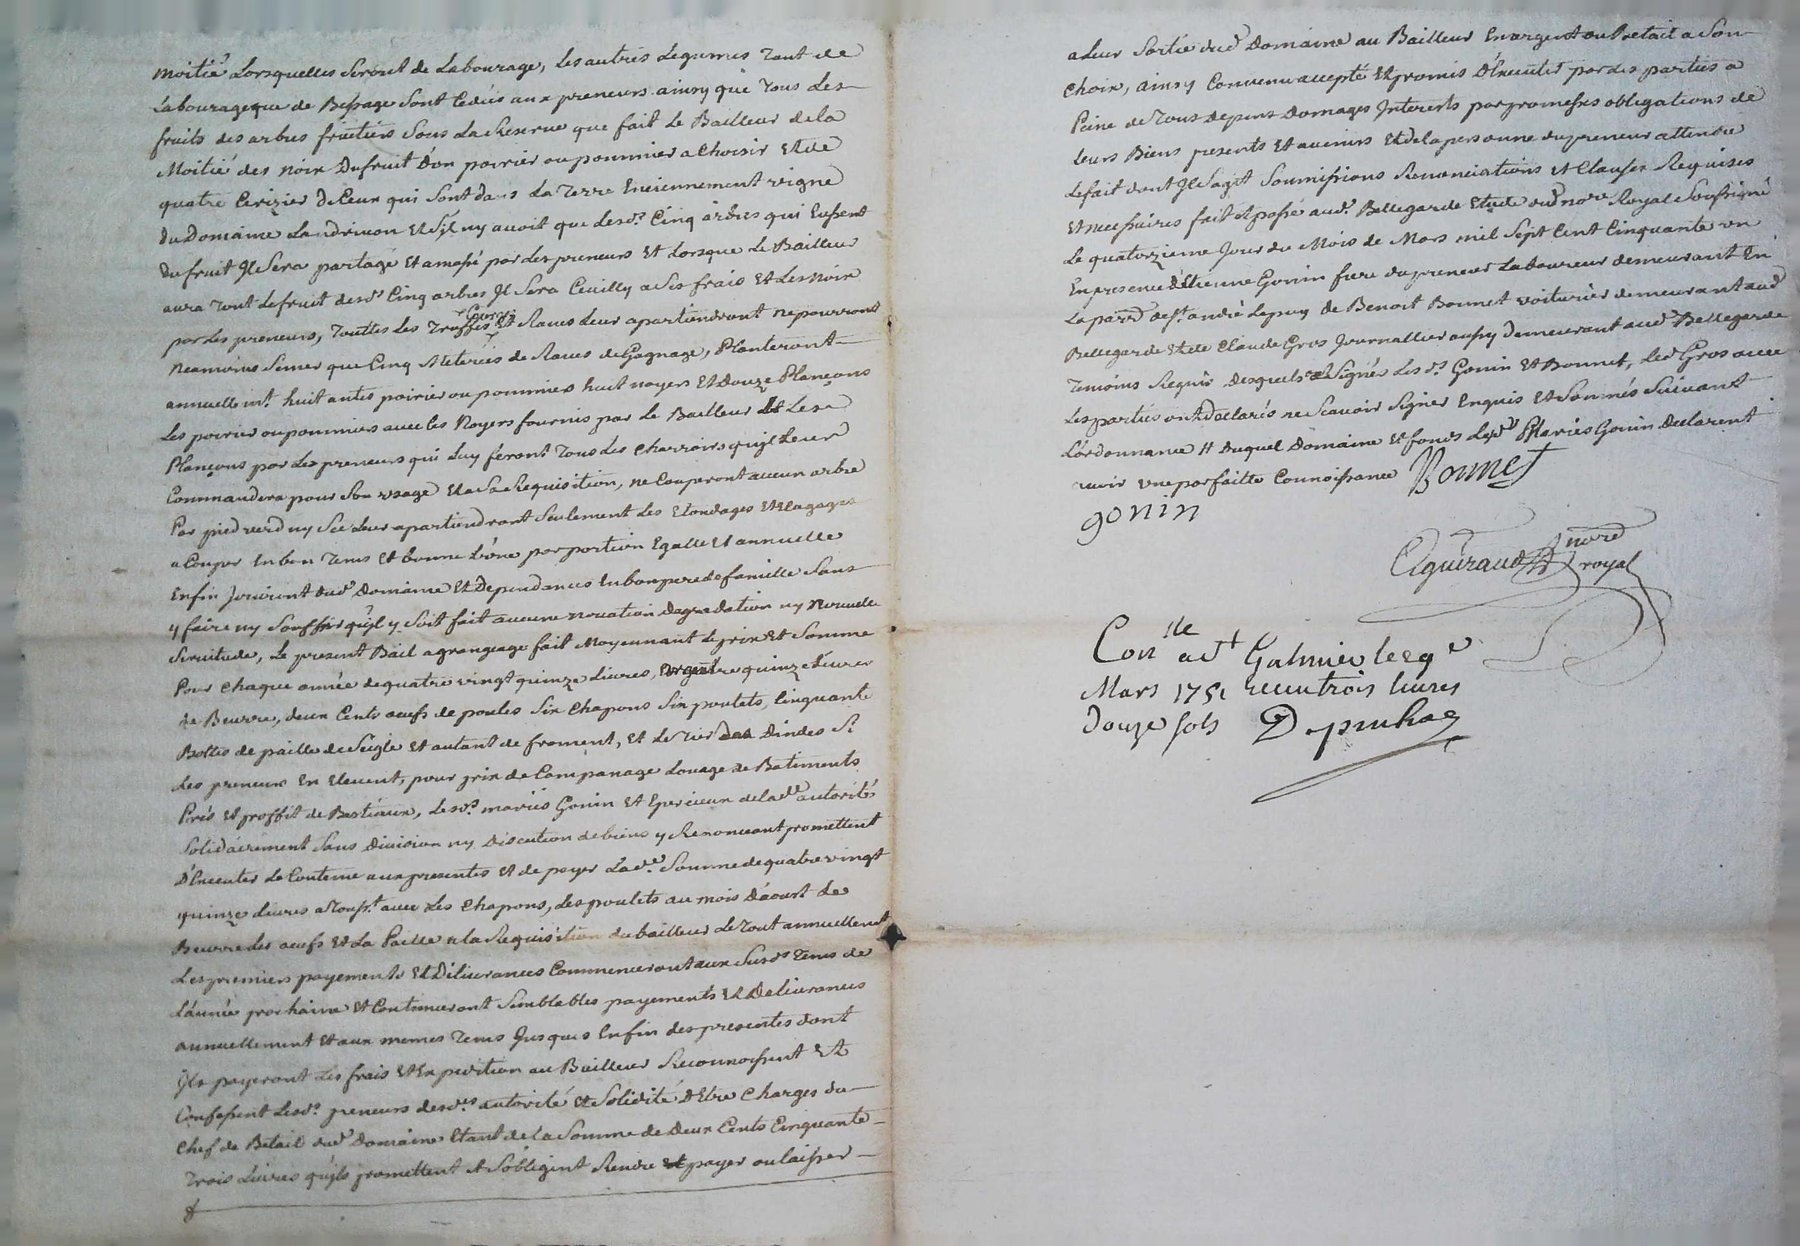 moitié Lorsquelles Seront de Labourage, Les autres Legumes Tant de
Labourage que de Bessage Sont Cedüs aux preneurs ainsy que Tous Les
fruits des arbres fruitiers Sous La Reserve que fait Le Bailleur de la
Moitié des noix Du fruit D'un poirier ou pommier a Choisir Et de
quatre Cerizier De Ceux qui Sont dans La Terre Enciennement vigne
du Domaine Landrivon Et S'jl ny avoit que Lesd.s Cinq arbres qui Eussent
du fruit Jl Sera partagé Et amassé par Les preneurs Et Lorsque Le Bailleur
aura Tout Le fruit desd.s Cinq arbres Jl Sera Ceuilly a Ses frais Et Les noix
par Les preneurs, Touttes Les Truffes Et Raves Leur apartiendront ne pourront
Neamoins Semer que Cinq Meterées de Raves de Gagnage, Planteront
annuellem.t huit antes poirier ou pommiers huit noyers Et Douze Plançons
Les poirier ou pommiers avec Les Noyers fournis par Le Bailleur Et Les
Plançons par Les preneurs qui Luy feront Tous Les Charroirs qu'jl Leur
Commandera pour Son usage Et a Sa Requisition, ne Couperont aucun arbre
Par pied verd ny Sec Leur apartiendront Seulement Les Etondages Et Elagages
a Couper En bon Tems Et bonne Lüne par portion Egalle Et annuelle
Enfin Joüiront dud. Domaine Et Dependances En bon pere de famille Sans
y faire ny Souffrir qu'jl y Soit fait aucune novation Degradation ny Nouvelle
Servitude, Le present Bail a grangeage fait Moyennant Le prix Et Somme
Pour Chaque année de quatre vingt quinze Livres, quinze Livres
de Beurre, deux Cents oeufs de poules Six Chapons Six poulets, Cinquante
Bottes de paille de Seigle Et autant de froment, Et Le Tier des Dindes Si
Les preneurs En Elevent, pour prix de Campanage Louage de Batiments
Prés Et proffit de Bestiaux, Lesd.s mariés Gonin Et Epercieux de lad.e autorités
Solidairement Sans Division ny Discution de biens y Renonceant promettent
D'Executer Le Contenu aux presentes Et de payer Lad.e Somme de quatre vingt
quinze Livres a Touss.t avec Les Chapons, Les poulets au mois D'aoust Le
Beurre Les oeufs Et La Paille a la Requisition du bailleur Le Tout annuellement
Les premiers payements Et Délivrances Commenceront aux Susd.s Tems de
L'année prochaine Et Continueront Semblables payements Et Delivrances
annuellement Et aux memes Tems Jusques Enfin des presentes dont
Jls payeront Les frais Et Expedition au Bailleur Reconnoissent Et
Confessent Lesd.s preneurs desd.es autorité Et Solidité D'Etre Charges du
Chef de Bétail dud. Domaine Etant de la Somme de Deux Cents Cinquante
Trois Livres qu'jls promettent Et S'obligent Rendre Et payer ou laisser
a Leur Sortie dud. Domaine au Bailleur En argent ou Betail a Son
Choix, ainsy Convenu accepté Et promis D'Executer par Les parties a
Peine de Tous Depens Domages Jnterests par promesses obligations de
Leurs Biens presents Et avenirs Et de la personne du preneur attendu
Le fait dont Jl S'agit Soumissions Renonciations Et Clauses Requises
Et necessaires fait Et passé aud. Bellegarde Etude dud. no.re Royal Soussigné
Le quatorzieme Jour du Mois de Mars mil Sept Cent Cinquante un
En presence d'Etienne Gonin frere du preneur Laboureur demeurant En
La parr.e de S.t andré Le puy de Benoit Bonnet voiturier demeurant aud.
Bellegarde Et de Claude Gros Journallier aussy demeurant aud. Bellegarde
Temoins Requis Desquels ont Signés Lesd.s Gonin Et Bonnet, Led. Gros avec
Les parties ont declarés ne Scavoir Signer Enquis Et Sommés Suivant
L'ordonnance // Duquel Domaine Et fonds Lesd.s Mariés Gonin Declarent
avoir une parfaitte Connoissance Bonnet
gonin
no.re
royal
Con.lle a S.t Galmier le 29e
Mars 1751 reçu trois livres
douze sols